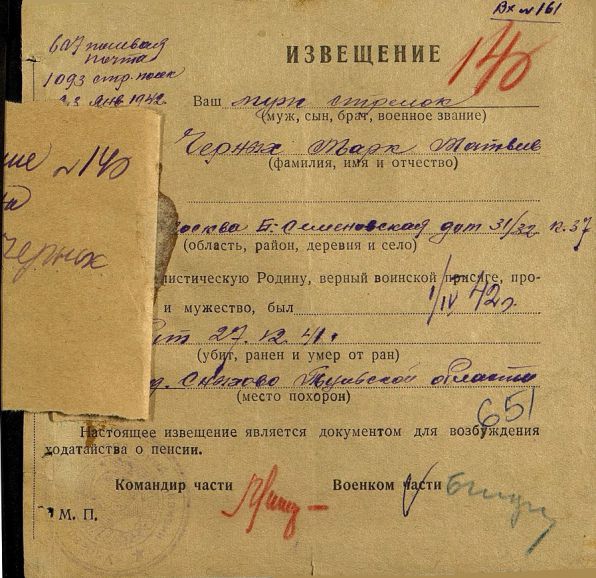 Вх №161
607 полевая
почта
1093 стр. полк
23 янв 1942
ИЗВЕЩЕНИЕ
140
Ваш муж стрелок
(муж, сын, брат, военное звание)
Черных Марк Матвее
(фамилия, имя и отчество)
№140
Черных
осква Б. Семеновская дом 31/32 к. 37
(область, район, деревня и село)
листическую Родину, верный воинской присяге, про-
и мужество, был
1/IV 42г
ит 27.12.41г
(убит, ранен и умер от ран)
д. Тульской области
(место похорон)
651
Настоящее извещение является документом для возбуждения
ходатайства о пенсии.
Командир части Военком части
М. П.